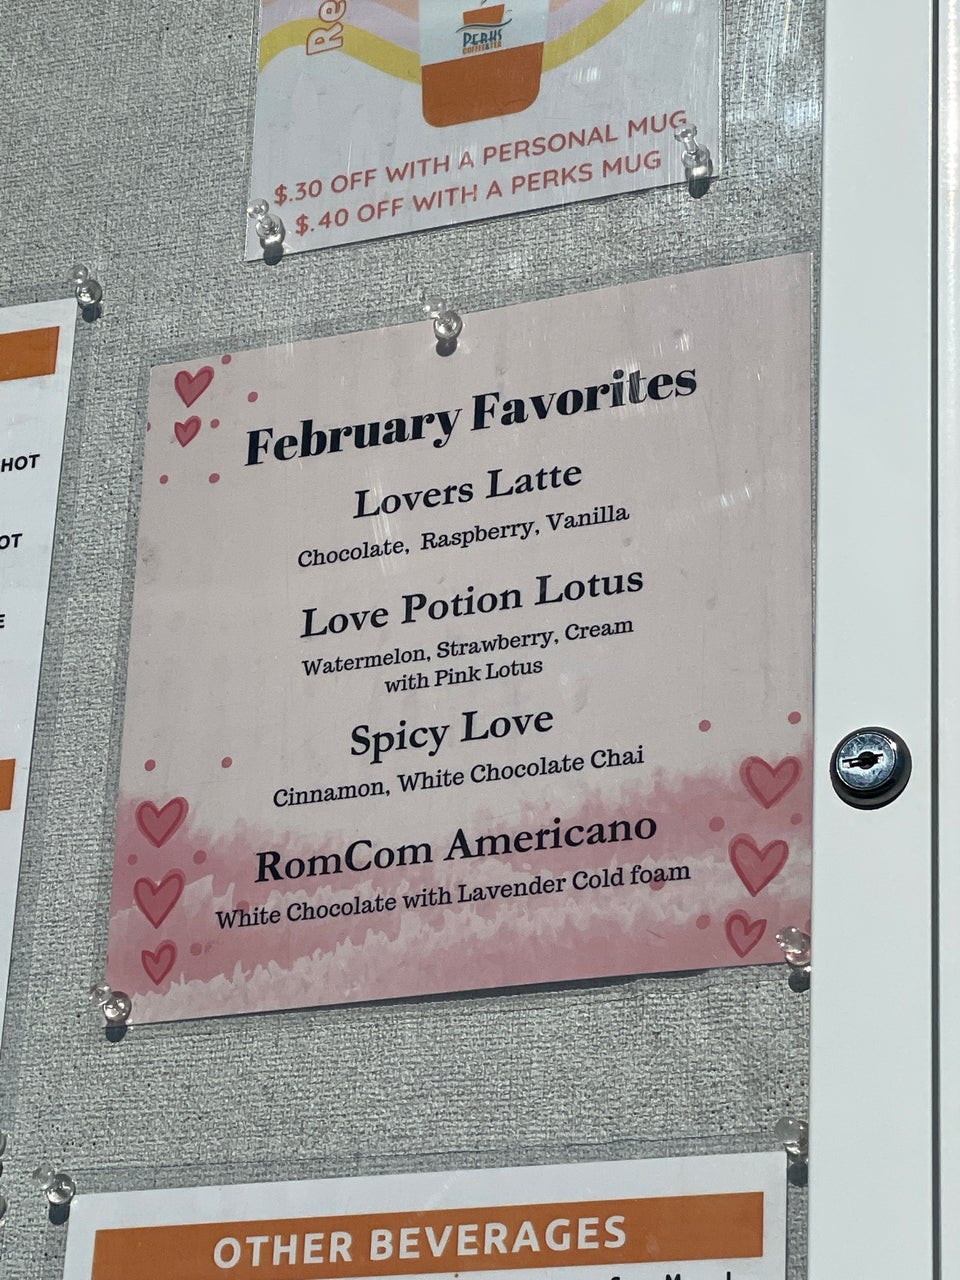 Re
PERKS
COFFEE & TEA
$.30 OFF WITH A PERSONAL MUG
$.40 OFF WITH A PERKS MUG
HOT
OT
E
February Favorites
Lovers Latte
Chocolate, Raspberry, Vanilla
Love Potion Lotus
Watermelon, Strawberry, Cream
with Pink Lotus
Spicy Love
Cinnamon, White Chocolate Chai
RomCom Americano
White Chocolate with Lavender Cold foam
OTHER BEVERAGES